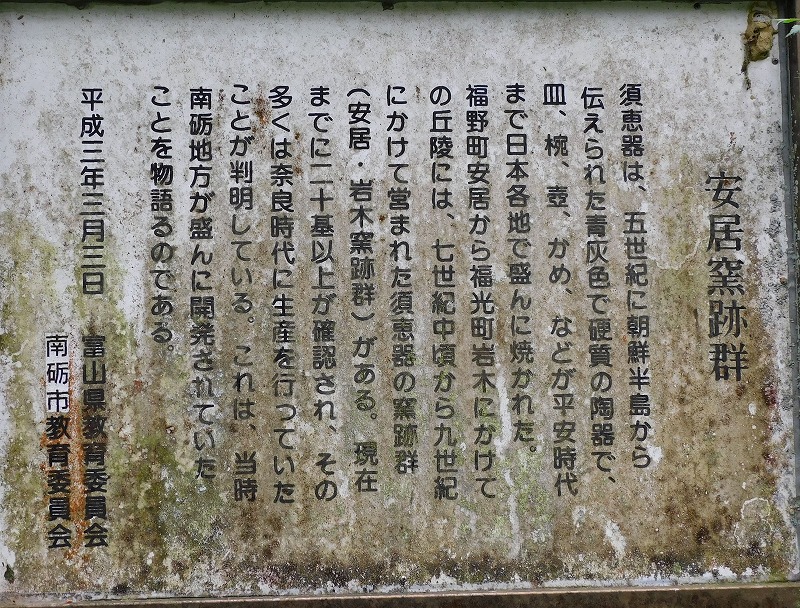 安居窯跡群
須恵器は、五世紀に朝鮮半島から
伝えられた青灰色で硬質の陶器で、
皿、椀、壺、かめ、などが平安時代
まで日本各地で盛んに焼かれた。
福野町安居から福光町岩木にかけて
の丘陵には、七世紀中頃から九世紀
にかけて営まれた須恵器の窯跡群
(安居・岩木窯跡群)がある。現在
までに二十基以上が確認され、その
多くは奈良時代に生産を行っていた
ことが判明している。これは、当時
南砺地方が盛んに開発されていた
ことを物語るのである。
平成三年三月三日 富山県教育委員会
南砺市教育委員会